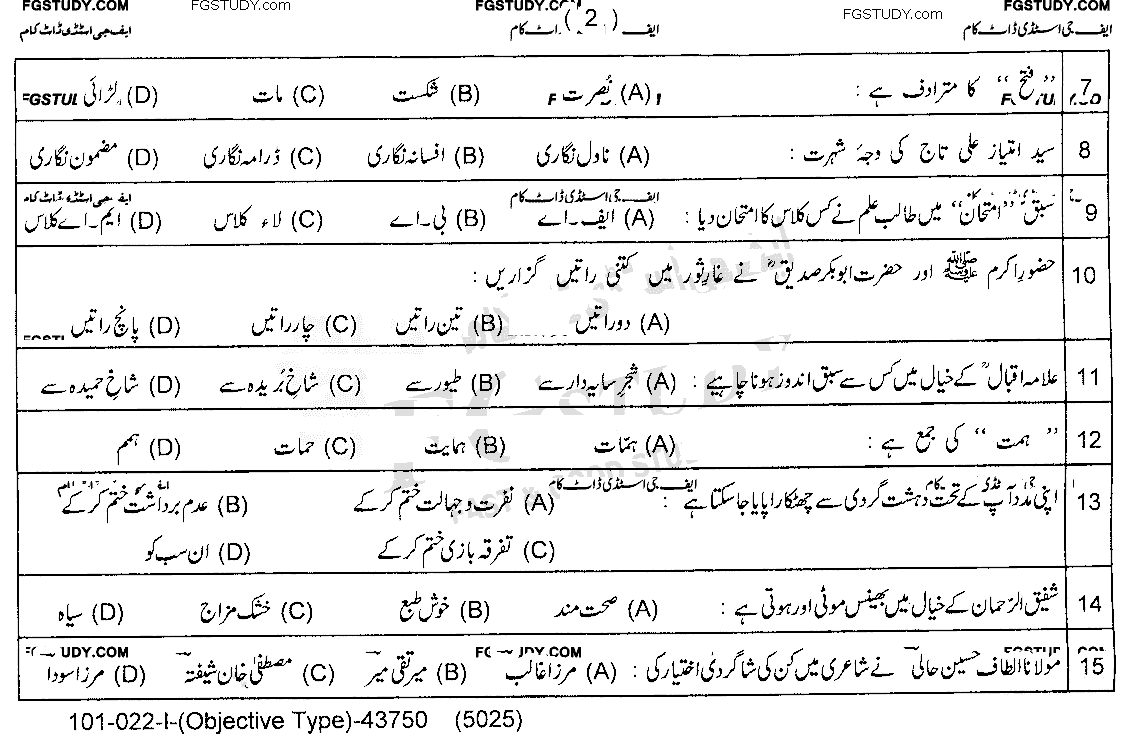 FGSTUDY.COM FGSTUDY.com FGSTUDY.COM FGSTUDY.com FGSTUDY.COM
ایف جی اسٹڈی ڈاٹ کام (2) ایف جی اسٹڈی ڈاٹ کام
7 ”فتح“ کا مترادف ہے : (A) نُصرت (B) شکست (C) مات (D) لڑائی
8 سید امتیاز علی تاج کی وجۂ شہرت : (A) ناول نگاری (B) افسانہ نگاری (C) ڈرامہ نگاری (D) مضمون نگاری
ایف جی اسٹڈی ڈاٹ کام
9 سبق ”امتحان“ میں طالب علم نے کس کلاس کا امتحان دیا : (A) ایف۔اے (B) بی۔اے (C) لاء کلاس (D) ایم۔اے کلاس
10 حضور اکرم ﷺ اور حضرت ابوبکر صدیقؓ نے غارِ ثور میں کتنی راتیں گزاریں :
(A) دو راتیں (B) تین راتیں (C) چار راتیں (D) پانچ راتیں
11 علامہ اقبالؒ کے خیال میں کس سے سبق اندوز ہونا چاہیے : (A) شجرِ سایہ دار سے (B) طیور سے (C) شاخِ بُریدہ سے (D) شاخِ خمیدہ سے
12 ”ہمت“ کی جمع ہے : (A) ہمّات (B) ہمایت (C) حمات (D) ہمم
ایف جی اسٹڈی ڈاٹ کام
13 اپنی مدد آپ کے تحت دہشت گردی سے چھٹکارا پایا جا سکتا ہے : (A) نفرت و جہالت ختم کر کے (B) عدم برداشت ختم کر کے
(C) تفرقہ بازی ختم کر کے (D) ان سب کو
14 شفیق الرّحمان کے خیال میں بھینس موٹی اور ہوتی ہے : (A) صحت مند (B) خوش طبع (C) خشک مزاج (D) سیاہ
15 مولانا الطاف حسین حالیؔ نے شاعری میں کن کی شاگردی اختیار کی : (A) مرزا غالب (B) میر تقی میر (C) مصطفیٰ خان شیفتہ (D) مرزا سودا
101-022-I-(Objective Type)-43750 (5025)